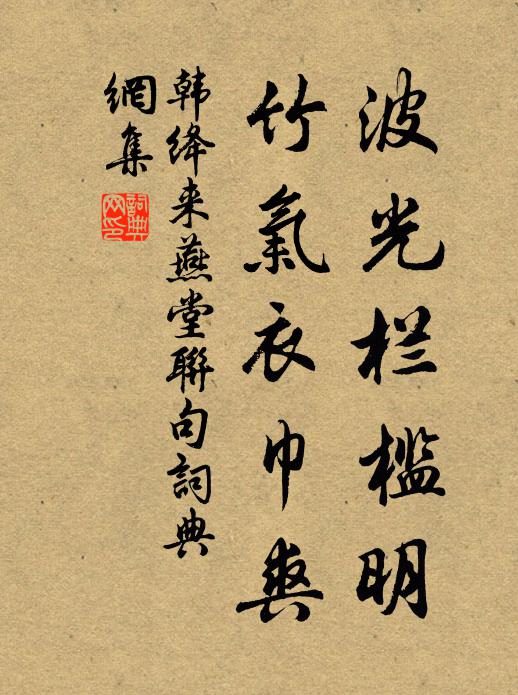 波光栏槛明
竹氣衣巾爽
韩绛来燕堂聯句詞典
網集
詞典
网印